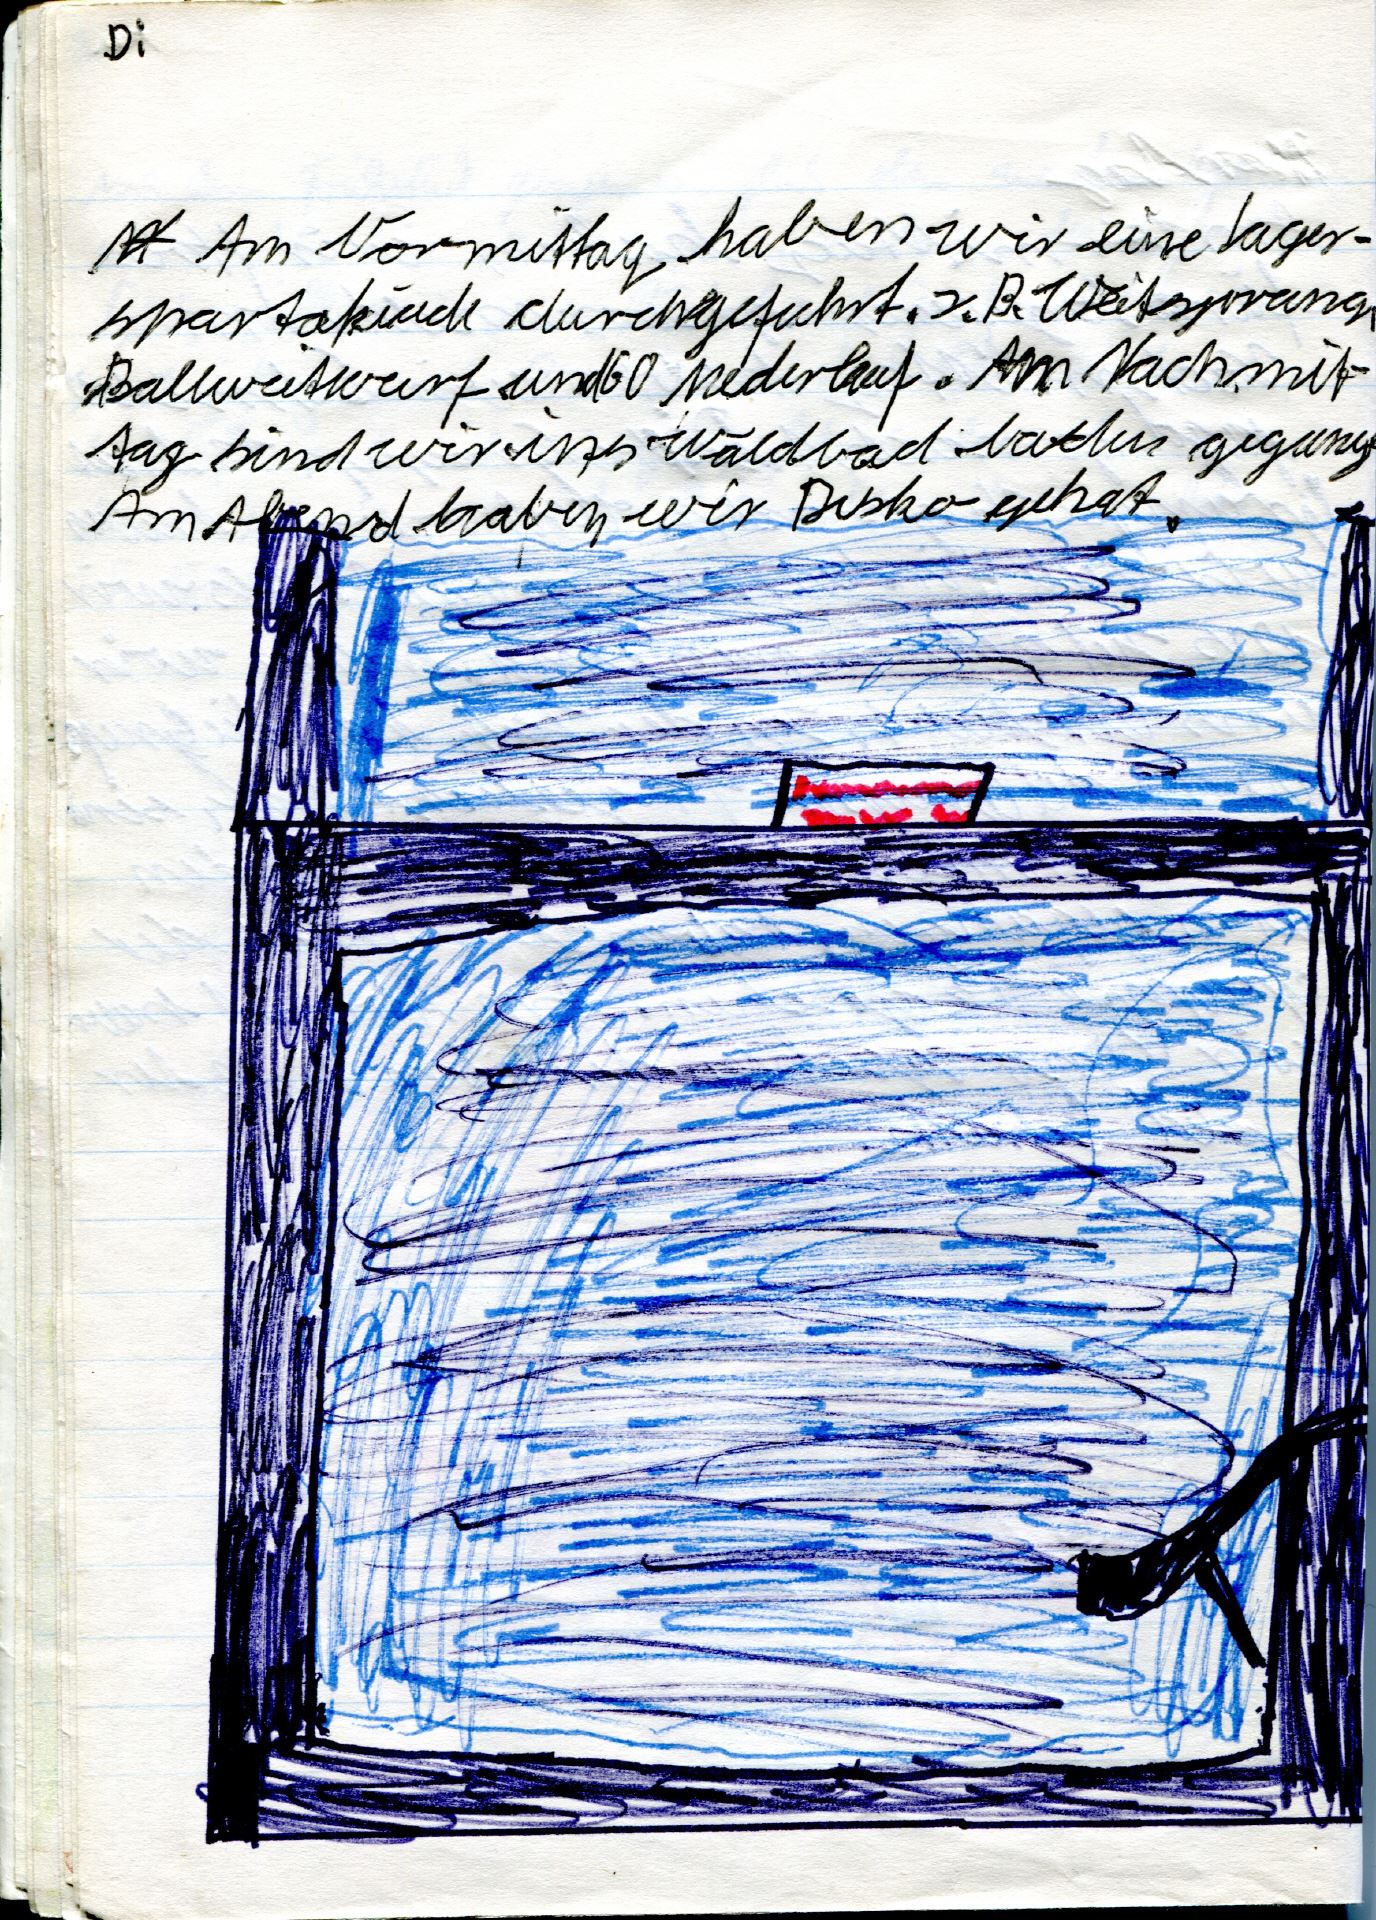 Di
Am Vormittag haben wir eine Lager-
spartakiade durchgeführt. z.B. Weitsprung,
Ballweitwurf und 60 Meterlauf. Am Nachmit-
tag sind wir ins Waldbad baden gegang
Am Abend haben wir Disko gehat.